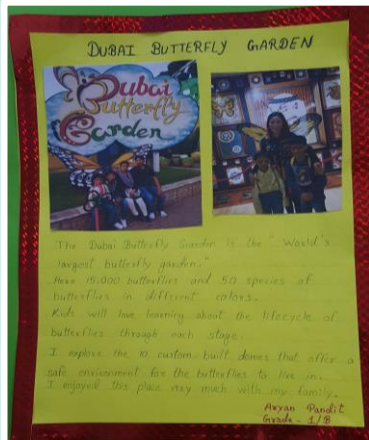 DUBAI BUTTERFLY GARDEN
Dubai
Butterfly
Garden
The Dubai Butterfly Garden is the "World's
largest butterfly garden."
Have 15,000 butterflies and 50 species of
butterflies in different colors.
Kids will love learning about the lifecycle of
butterflies through each stage.
I explore the 10 custom built domes that offer a
safe environment for the butterflies to live in.
I enjoyed this place very much with my family.
Aryan Pandit
Grade - 1/B